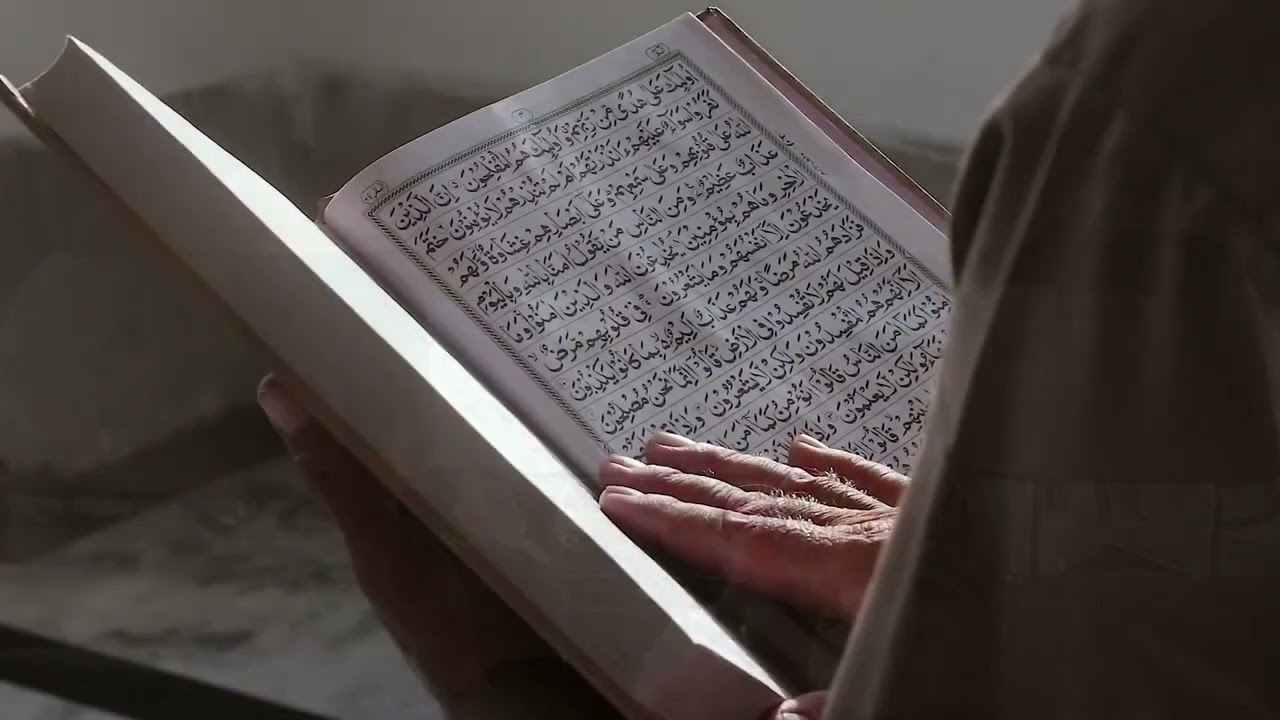 اُولٰٓئِكَ عَلٰى هُدًى مِّنْ رَّبِّهِمْ وَاُولٰٓئِكَ هُمُ الْمُفْلِحُوْنَ اِنَّ الَّذِيْنَ
كَفَرُوْا سَوَآءٌ عَلَيْهِمْ ءَاَنْذَرْتَهُمْ اَمْ لَمْ تُنْذِرْهُمْ لَا يُؤْمِنُوْنَ خَتَمَ
اللّٰهُ عَلٰى قُلُوْبِهِمْ وَعَلٰى سَمْعِهِمْ وَعَلٰٓى اَبْصَارِهِمْ غِشَاوَةٌ وَّلَهُمْ
عَذَابٌ عَظِيْمٌ وَمِنَ النَّاسِ مَنْ يَّقُوْلُ اٰمَنَّا بِاللّٰهِ وَبِالْيَوْمِ
الْاٰخِرِ وَمَا هُمْ بِمُؤْمِنِيْنَ يُخٰدِعُوْنَ اللّٰهَ وَالَّذِيْنَ اٰمَنُوْا وَمَا
يَخْدَعُوْنَ اِلَّآ اَنْفُسَهُمْ وَمَا يَشْعُرُوْنَ فِيْ قُلُوْبِهِمْ مَّرَضٌ
فَزَادَهُمُ اللّٰهُ مَرَضًا وَلَهُمْ عَذَابٌ اَلِيْمٌ بِمَا كَانُوْا يَكْذِبُوْنَ
وَاِذَا قِيْلَ لَهُمْ لَا تُفْسِدُوْا فِى الْاَرْضِ قَالُوْٓا اِنَّمَا نَحْنُ مُصْلِحُوْنَ
اَلَآ اِنَّهُمْ هُمُ الْمُفْسِدُوْنَ وَلٰكِنْ لَّا يَشْعُرُوْنَ وَاِذَا
كَمَآ اٰمَنَ النَّاسُ قَالُوْٓا اَنُؤْمِنُ كَمَآ اٰمَنَ
وَلٰكِنْ لَّا يَعْلَمُوْنَ وَاِذَا
قَالُوْٓا